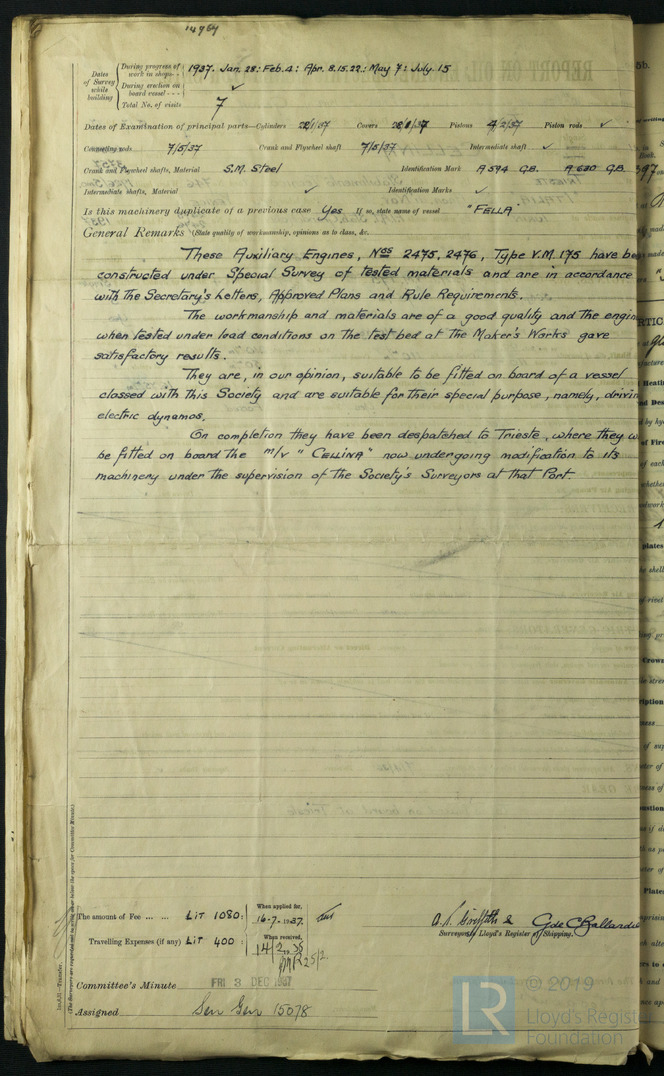 14964
Dates of Survey while building
During progress of work in shops - - 1937. Jan. 28: Feb. 4: Apr. 8. 15. 22.: May 7: July. 15
During erection on board vessel - - - ✓
Total No. of visits 7
Dates of Examination of principal parts—Cylinders 28/1/37 Covers 28/1/37 Pistons 4/2/37 Piston rods ✓
Connecting rods 7/5/37 Crank and Flywheel shaft 7/5/37 Intermediate shaft ✓
Crank and Flywheel shafts, Material S.M. Steel Identification Mark A 594 G.B. A 630 G.B.
Intermediate shafts, Material ✓ Identification Marks ✓
Is this machinery duplicate of a previous case Yes If so, state name of vessel "FELLA"
General Remarks (State quality of workmanship, opinions as to class, &c.
These Auxiliary Engines, Nos 2475, 2476, Type V.M. 175 have be
constructed under Special Survey of tested materials and are in accordance
with the Secretary's Letters, Approved Plans and Rule Requirements.
The workmanship and materials are of a good quality and the engin
when tested under load conditions on the test bed at the Maker's Works gave
satisfactory results.
They are, in our opinion, suitable to be fitted on board of a vessel
classed with this Society and are suitable for their special purpose, namely, drivin
electric dynamos.
On completion they have been despatched to Trieste, where they w
be fitted on board the m/v "CELLINA" now undergoing modification to its
machinery under the supervision of the Society's Surveyors at that Port.
The amount of Fee ... ... LIT 1080: When applied for, 16-7-1937.
Travelling Expenses (if any) LIT 400: When received, 14/2. 38
25/2.
Surveyors to Lloyd's Register of Shipping.
Committee's Minute FRI 3 DEC 1937
Assigned See Gen 15078
© 2019
LR
Lloyd's Register
Foundation